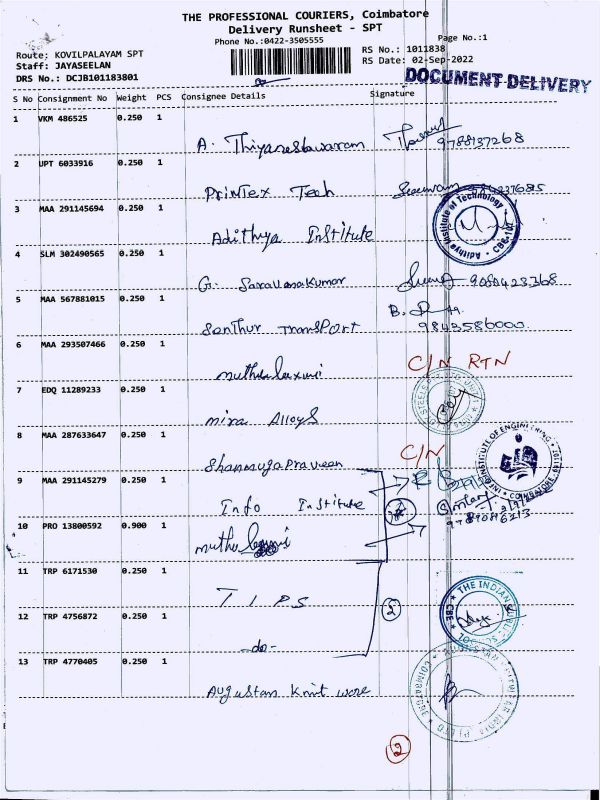 THE PROFESSIONAL COURIERS, Coimbatore
Delivery Runsheet - SPT
Phone No.:0422-3505555
Page No.:1
Route: KOVILPALAYAM SPT
Staff: JAYASEELAN
DRS No.: DCJB101183801
RS No.: 1011838
RS Date: 02-Sep-2022
DOCUMENT DELIVERY
S No Consignment No Weight PCS Consignee Details Signature
1 VKM 486525 0.250 1
A. Thiyaneshwaram 9788137268
2 UPT 6033916 0.250 1
Printex Tech
3 MAA 291145694 0.250 1
Adithya Institute
Adithya Institute of Technology * CBE-107 *
4 SLM 302490565 0.250 1
G. Saravanakumar 9080423368
5 MAA 567881015 0.250 1
Santhur Transport 9843586000
6 MAA 293507466 0.250 1
muthulaxmi C/N RTN
7 EDQ 11289233 0.250 1
mira Alloys
8 MAA 287633647 0.250 1
Shanmugapraveen C/N
INSTITUTE OF ENGINEERING
COIMBATORE
9 MAA 291145279 0.250 1
Info Institute
10 PRO 13800592 0.900 1
muthulaxmi
11 TRP 6171530 0.250 1
TIPS
12 TRP 4756872 0.250 1
-do-
THE INDIAN PUBLIC
CBE
13 TRP 4770405 0.250 1
Augustan Knit wore
2